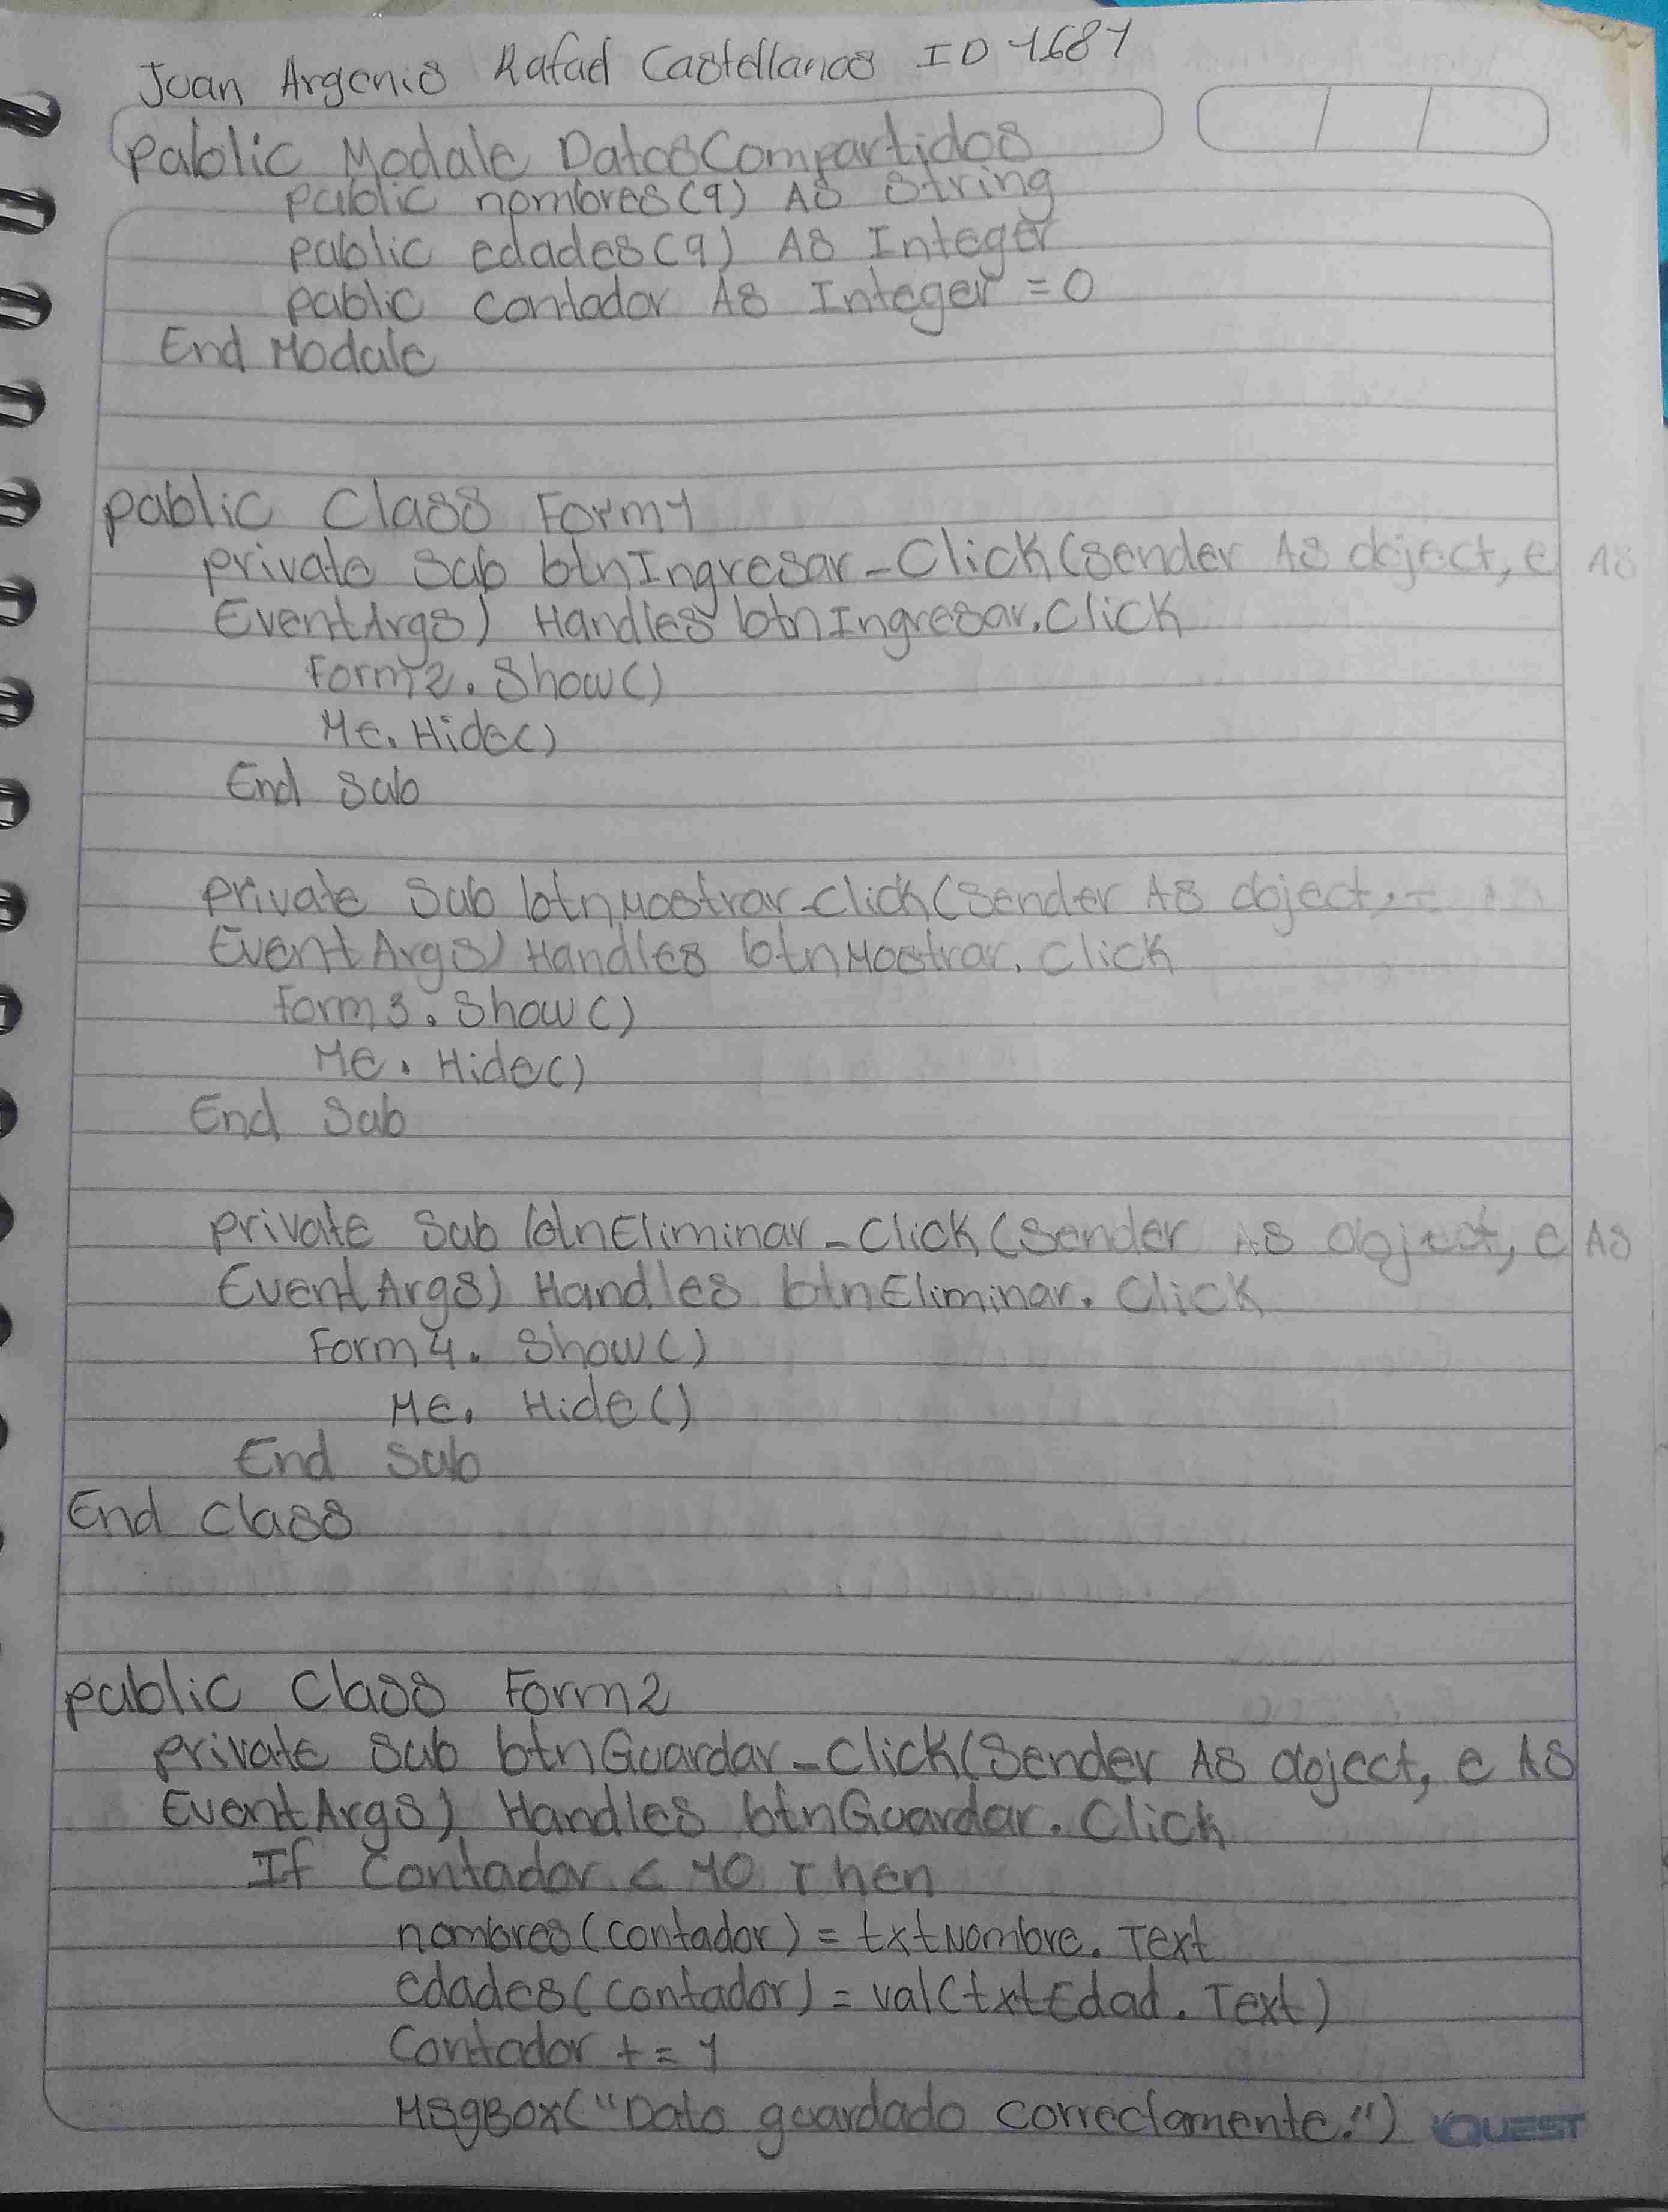 Juan Argenis Rafael Castellanos ID 1681
Public Module DatosCompartidos
public nombres(9) As String
public edades(9) As Integer
public contador As Integer = 0
End Module
public Class Form1
private Sub btnIngresar_Click(sender As object, e As
EventArgs) Handles btnIngresar.Click
Form2.Show()
Me.Hide()
End Sub
private Sub btnMostrar_Click(sender As object, e As
EventArgs) Handles btnMostrar.Click
Form3.Show()
Me.Hide()
End Sub
private Sub btnEliminar_Click(sender As object, e As
EventArgs) Handles btnEliminar.Click
Form4.Show()
Me.Hide()
End Sub
End Class
public Class Form2
private Sub btnGuardar_Click(sender As object, e As
EventArgs) Handles btnGuardar.Click
If contador < 10 Then
nombres(contador) = txtNombre.Text
edades(contador) = val(txtEdad.Text)
Contador += 1
MsgBox("Dato guardado correctamente.")
QUEST